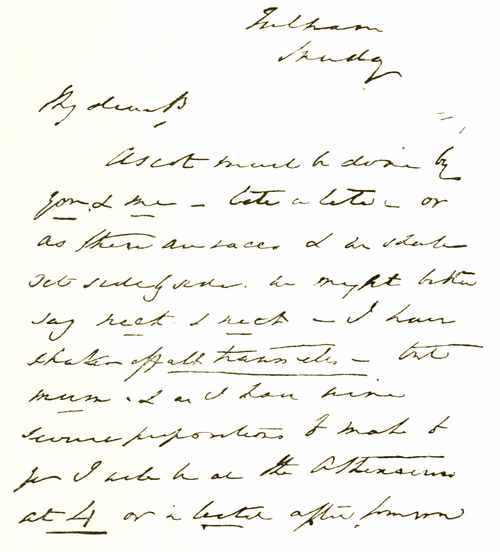 Fulham
Sunday
My dear B
Ascot must be done by
you & me – tete a tete – or
as there are races & we shall
sit side by side. we might better
say neck & neck – I have
shaken off all trammels – but
mum. & as I have
propositions to make to
you I will be at the Athenaeum
at 4 or a little after tomorrow